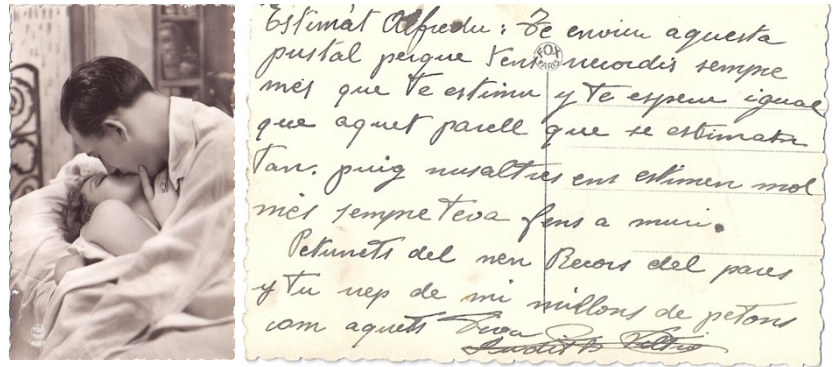 Estimat Alfredu: Te enviu aquesta
pustal perque t'ens recordis sempre
FOX
PARIS
més que te estimu y te esperu igual
que aquet parell que se estimatn
tan. puig nusaltres ens estimen mol
més sempre teva fins a muri.
Petunets del nen Recors del pares
y tu rep de mi millons de petons
com aquets Teva
FOX